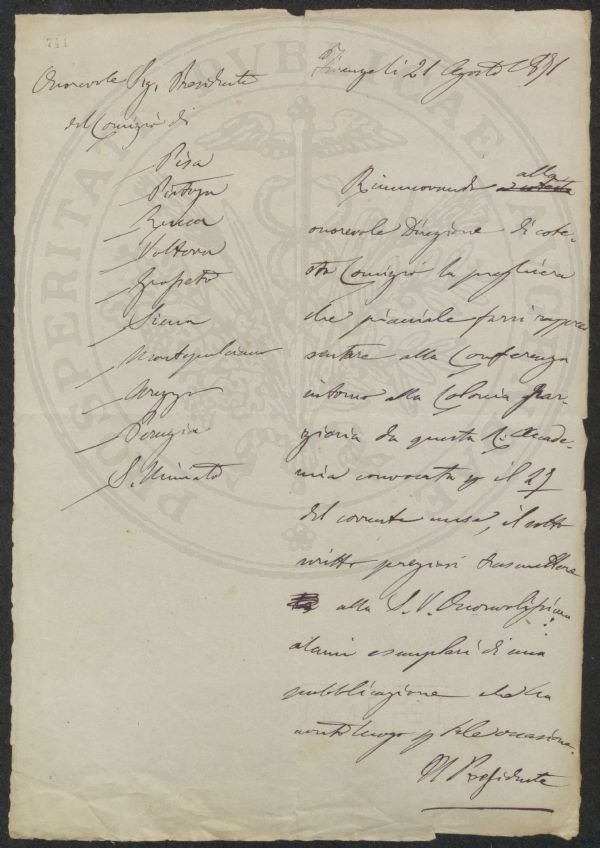 741
Firenze li 21 Agosto 1891
Onorevole Sig. Presidente
del Comizio di
Pisa
Pistoja
Lucca
Volterra
Grosseto
Siena
Montepulciano
Arezzo
Perugia
S. Miniato
alla
Rinnovando
onorevole Direzione di cote-
sto Comizio la preghiera
che piaciale farsi rappre
sentare alla Conferenza
intorno alla Colonia Par-
ziaria da questa R. Accade-
mia convocata p il 27
del corrente mese, il sotto
scritto pregiasi trasmettere
alla S. V. Onorevolissima
alcuni esemplari di una
pubblicazione che ha
avuto luogo p tale occasione.
Il Presidente
PROSPERITATI PUBLICAE AUGENDAE